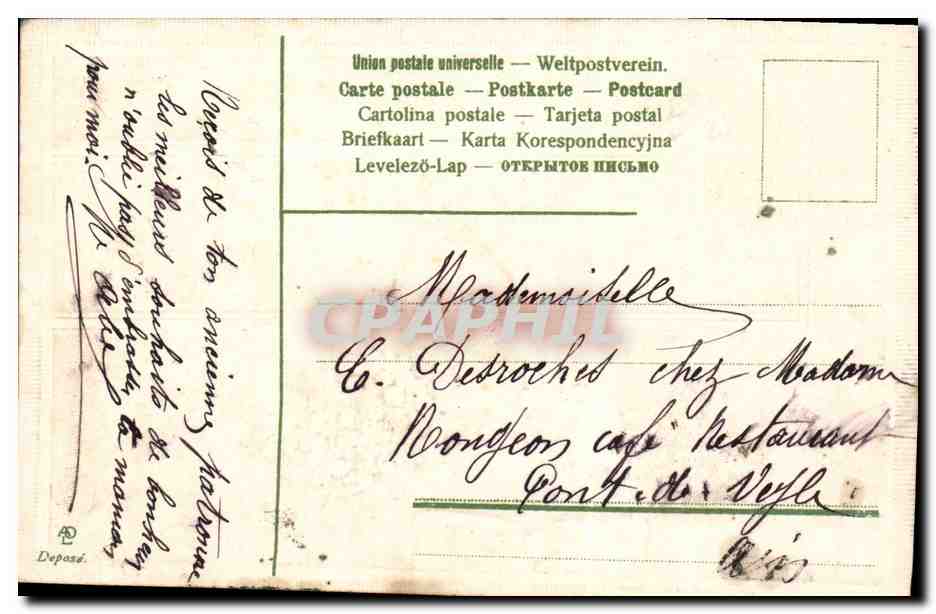 Union postale universelle — Weltpostverein.
Carte postale — Postkarte — Postcard
Cartolina postale — Tarjeta postal
Briefkaart — Karta Korespondencyjna
Levelező-Lap — ОТКРЫТОЕ ПИСЬМО
Reçois de ton ancienne patronne
les meilleurs souhaits de bonheur
n'oublie pas d'embrasser ta maman
pour moi.
Mademoiselle
E. Desroches chez Madame
Rongeon café Restaurant
Pont-de-Veyle
Ain
CPAPHIL
Deposé.